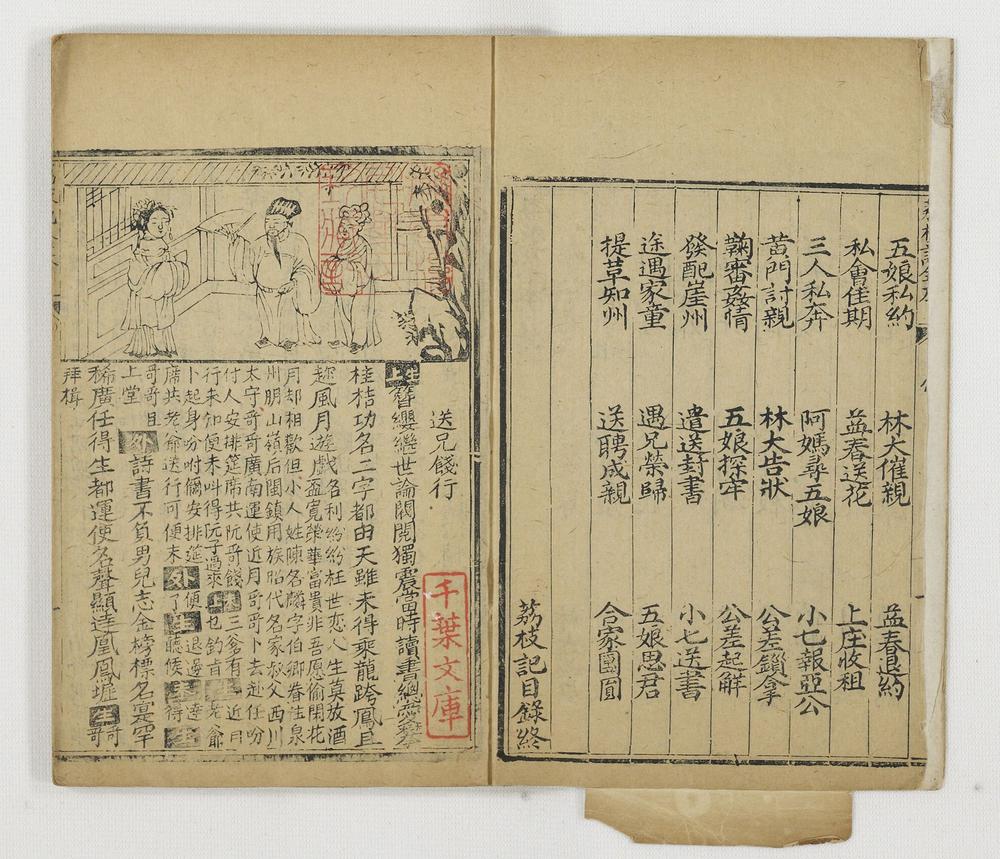 五娘私約 林大催親 益春退約
私會佳期 益春送花 上庄收租
三人私奔 阿媽尋五娘 小七報亞公
黃門討親 林大告狀 公差鎖拿
鞠審姦情 五娘探牢 公差起解
發配崖州 遣送封書 小七送書
途遇家童 遇兄榮歸 五娘思君
提草知州 送聘成親 合家團圓
荔枝記目錄終
送兄餞行
千葉文庫
生簪纓繼世論閥閱獨震當時讀書
桂桔功名二字都由天雖未得乘龍跨鳳且
趂風月遊戲名利紛紛枉世恋人生莫放酒
盃寬榮華富貴非吾愿偷閑花
月却相歡但小人姓陳名麟字伯卿眷住泉
州朋山嶺后閩鎮用族胎代名家叔父西川
太守哥哥廣南運使近月哥哥卜去赴任吩
付人安排筵席共阮哥餞三爹有近日
行未知便未叫得阮子過來上也钓旨老爺
卜起身吩咐儞安排筵便退邊連
席共老爺送行可便未外了生聽候得生
哥哥且
上堂外詩書不負男兒志金榜標名寔罕
稀廣任得生都運使名聲顯達鳳凰墀生哥哥
拜揖